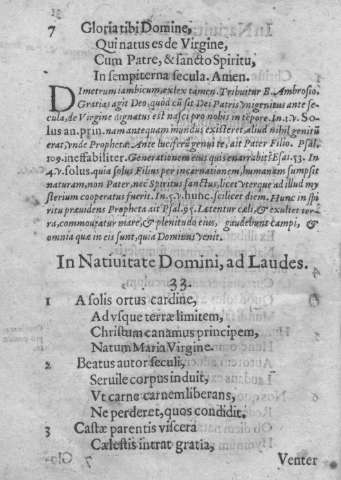 7 Gloria tibi Domine,
Qui natus es de Virgine,
Cum Patre, & sancto Spiritu,
In sempiterna secula. Amen.
Dimetrum iambicum, ex lex tamen. Tribuitur B. Ambrosio.
Gratias agit Deo, quòd cū sit Dei Patris vnigenitus ante se-
cula, de Virgine dignatus est nasci pro nobis in tēpore. In.1.v. So-
lus an. prin. nam antequam mundus existeret, aliud nihil genitū
erat, vnde Propheta. Ante luciferū genui te, ait Pater Filio. Psal.
109. ineffabiliter. Generationem eius quis enarrabit? Esai.53. In
4.v. solus, quia solus Filius per incarnationem, humanam sumpsit
naturam, non Pater, nec Spiritus sanctus, licet vterque ad illud my
sterium cooperatus fuerit. In.5.v. hunc, scilicet diem. Hunc in spi
ritu præuidens Propheta ait Psal.95. Lætentur cæli, & exultet ter-
ra, commoueatur mare, & plenitudo eius, gaudebunt campi, &
omnia quæ in eis sunt, quia Dominus venit.
In Natiuitate Domini, ad Laudes.
33.
1 A solis ortus cardine,
Ad vsque terræ limitem,
Christum canamus principem,
Natum Maria Virgine.
2 Beatus autor seculi,
Seruile corpus induit,
Vt carne carnem liberans,
Ne perderet, quos condidit.
3 Castæ parentis viscera
Cælestis intrat gratia,
Venter